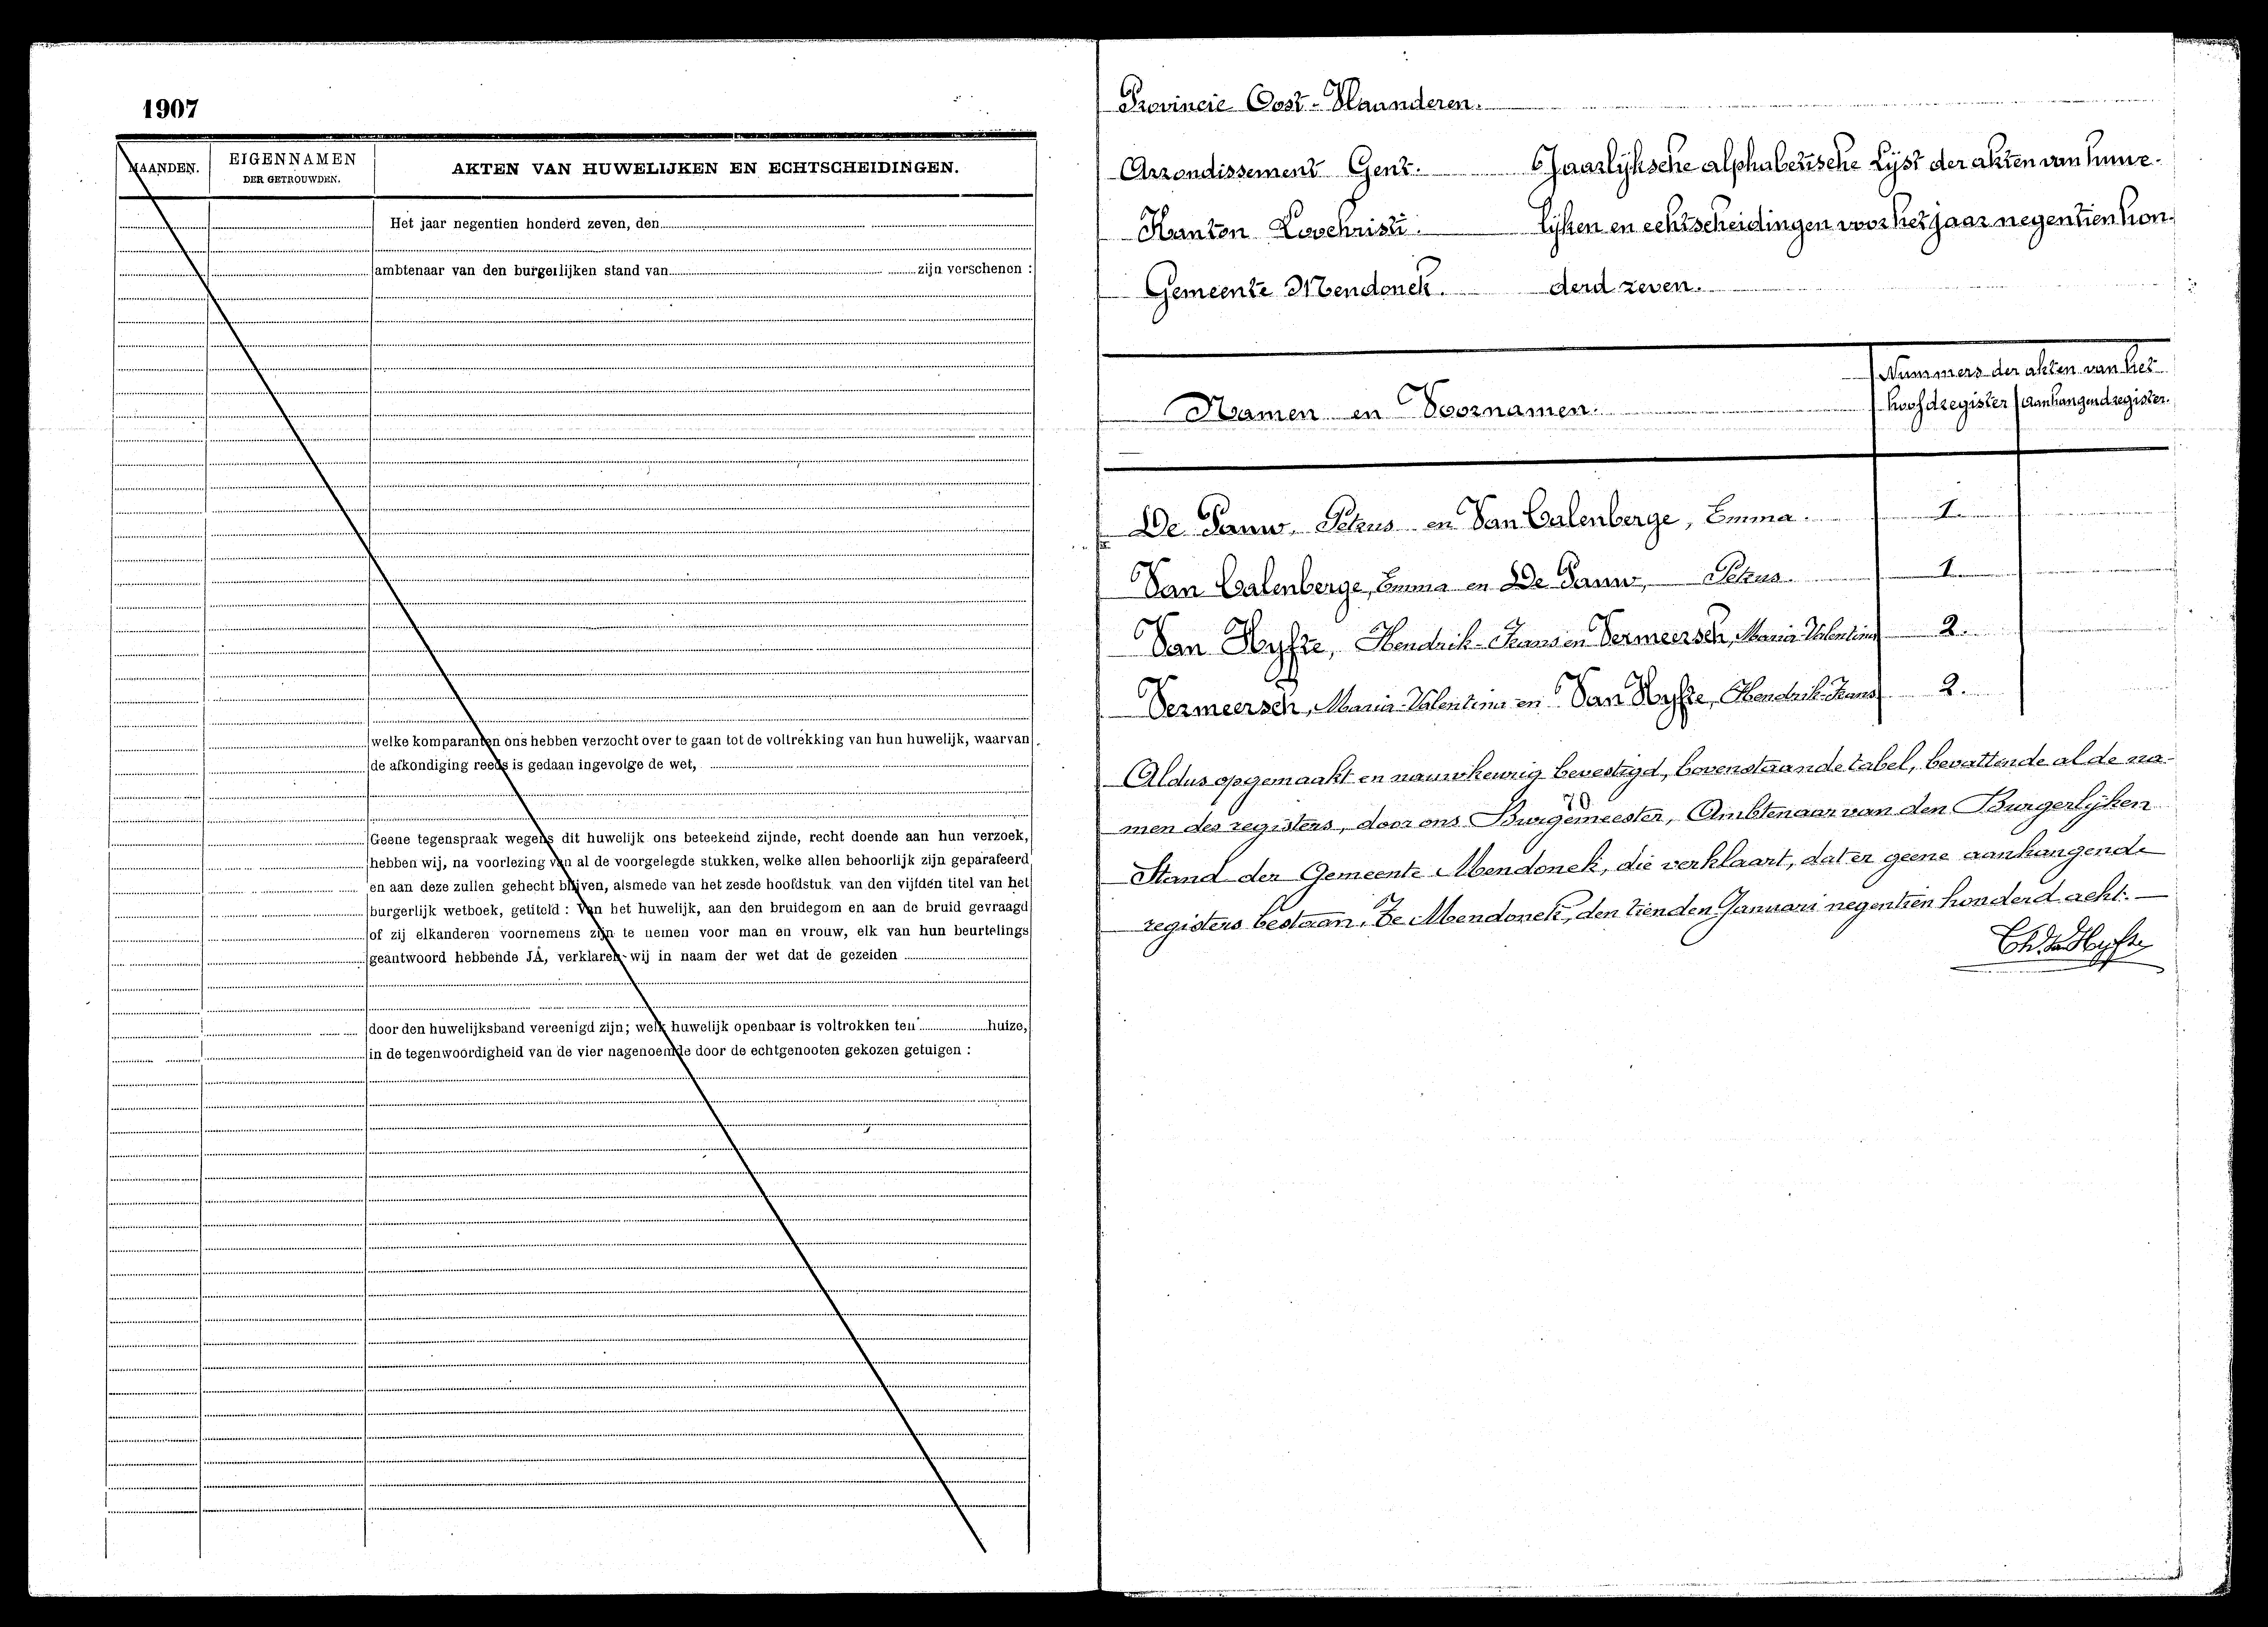 1907
MAANDEN.
EIGENNAMEN
DER GETROUWDEN.
AKTEN VAN HUWELIJKEN EN ECHTSCHEIDINGEN.
Het jaar negentien honderd zeven, den
ambtenaar van den burgerlijken stand van zijn verschenen :
welke komparanten ons hebben verzocht over te gaan tot de voltrekking van hun huwelijk, waarvan
de afkondiging reeds is gedaan ingevolge de wet,
Geene tegenspraak wegens dit huwelijk ons beteekend zijnde, recht doende aan hun verzoek,
hebben wij, na voorlezing van al de voorgelegde stukken, welke allen behoorlijk zijn geparafeerd
en aan deze zullen gehecht blijven, alsmede van het zesde hoofdstuk van den vijfden titel van het
burgerlijk wetboek, getiteld : Van het huwelijk, aan den bruidegom en aan de bruid gevraagd
of zij elkanderen voornemens zijn te nemen voor man en vrouw, elk van hun beurtelings
geantwoord hebbende JA, verklaren wij in naam der wet dat de gezeiden
door den huwelijksband vereenigd zijn; welk huwelijk openbaar is voltrokken ten huize,
in de tegenwoordigheid van de vier nagenoemde door de echtgenooten gekozen getuigen :
Provincie Oost-Vlaanderen.
Arrondissement Gent. Jaarlijksche alphabetische Lijst der akten van huwe-
Kanton Loochristi. lijken en echtscheidingen voor het jaar negentien hon-
Gemeente Mendonck. derd zeven.
Namen en Voornamen.
Nummers der akten van het
hoofdregister
aanhangend register.
De Pauw, Petrus en Van Calenberge, Emma. 1.
Van Calenberge, Emma en De Pauw, Petrus. 1.
Van Hyfte, Hendrik-Frans en Vermeersch, Maria-Valentina 2.
Vermeersch, Maria-Valentina en Van Hyfte, Hendrik-Frans 2.
Aldus opgemaakt en nauwkeurig bevestigd, bovenstaande tabel, bevattende al de na-
men des registers, door ons Burgemeester, Ambtenaar van den Burgerlijken
Stand der Gemeente Mendonck, die verklaart, dat er geene aanhangende
registers bestaan. Te Mendonck, den tienden Januari negentien honderd acht.
Ch. Van Hyfte